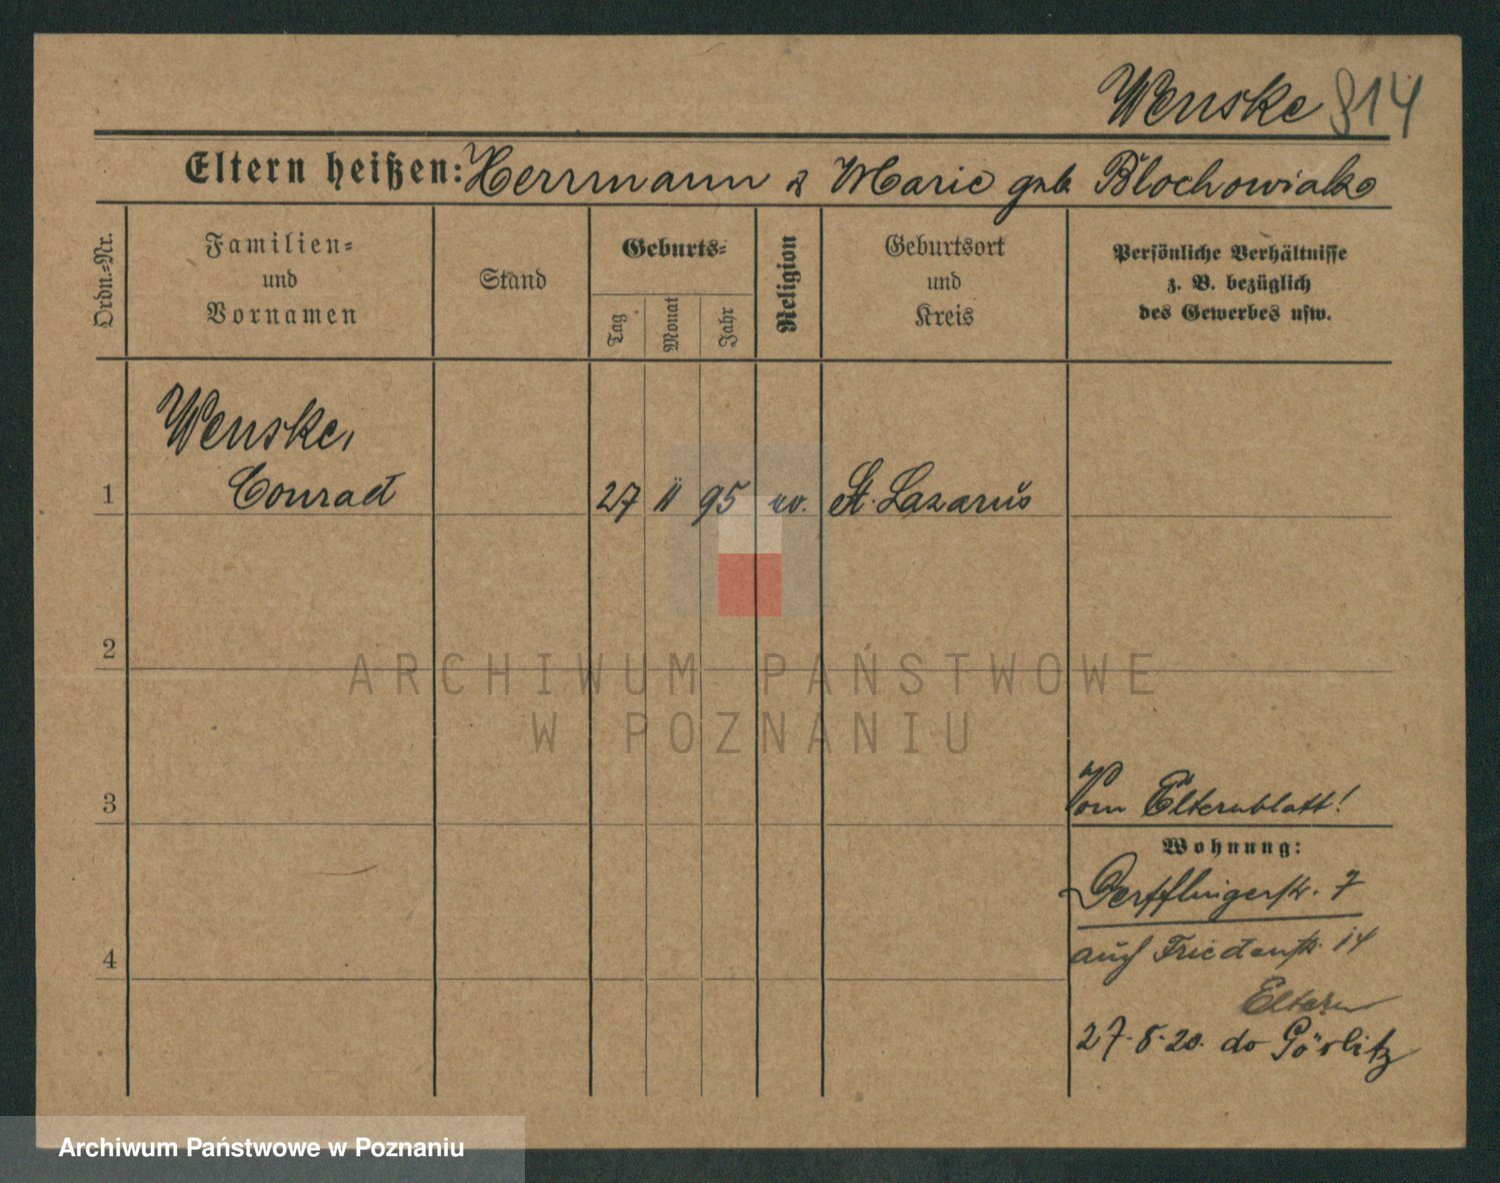 Wenske 814
Eltern heißen: Herrmann & Marie geb. Blochowiak
Ordn.=Nr.
Familien=
und
Vornamen
Stand
Geburts=
Tag
Monat
Jahr
Religion
Geburtsort
und
Kreis
Persönliche Verhältnisse
z. B. bezüglich
des Gewerbes usw.
Wenske,
1 Conrad 27 11 95 ev. St. Lazarus
2
ARCHIWUM PAŃSTWOWE
W POZNANIU
3 Vom Elternblatt!
Wohnung:
Derfflingerstr. 7
4 auch Friedenstr. 14
Eltern
27.8.20. do Görlitz
Archiwum Państwowe w Poznaniu